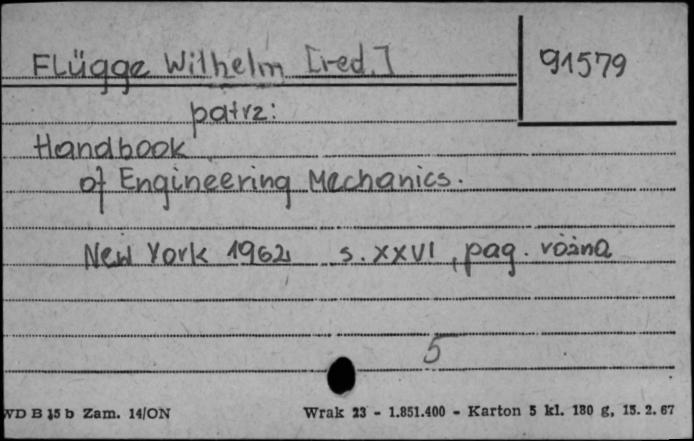 Flügge Wilhelm [red.]
91579
patrz:
Handbook
of Engineering Mechanics.
New York 1962 s. XXVI, pag. różna
5
WD B 15 b Zam. 14/ON
Wrak 23 - 1.851.400 - Karton 5 kl. 180 g, 15. 2. 67